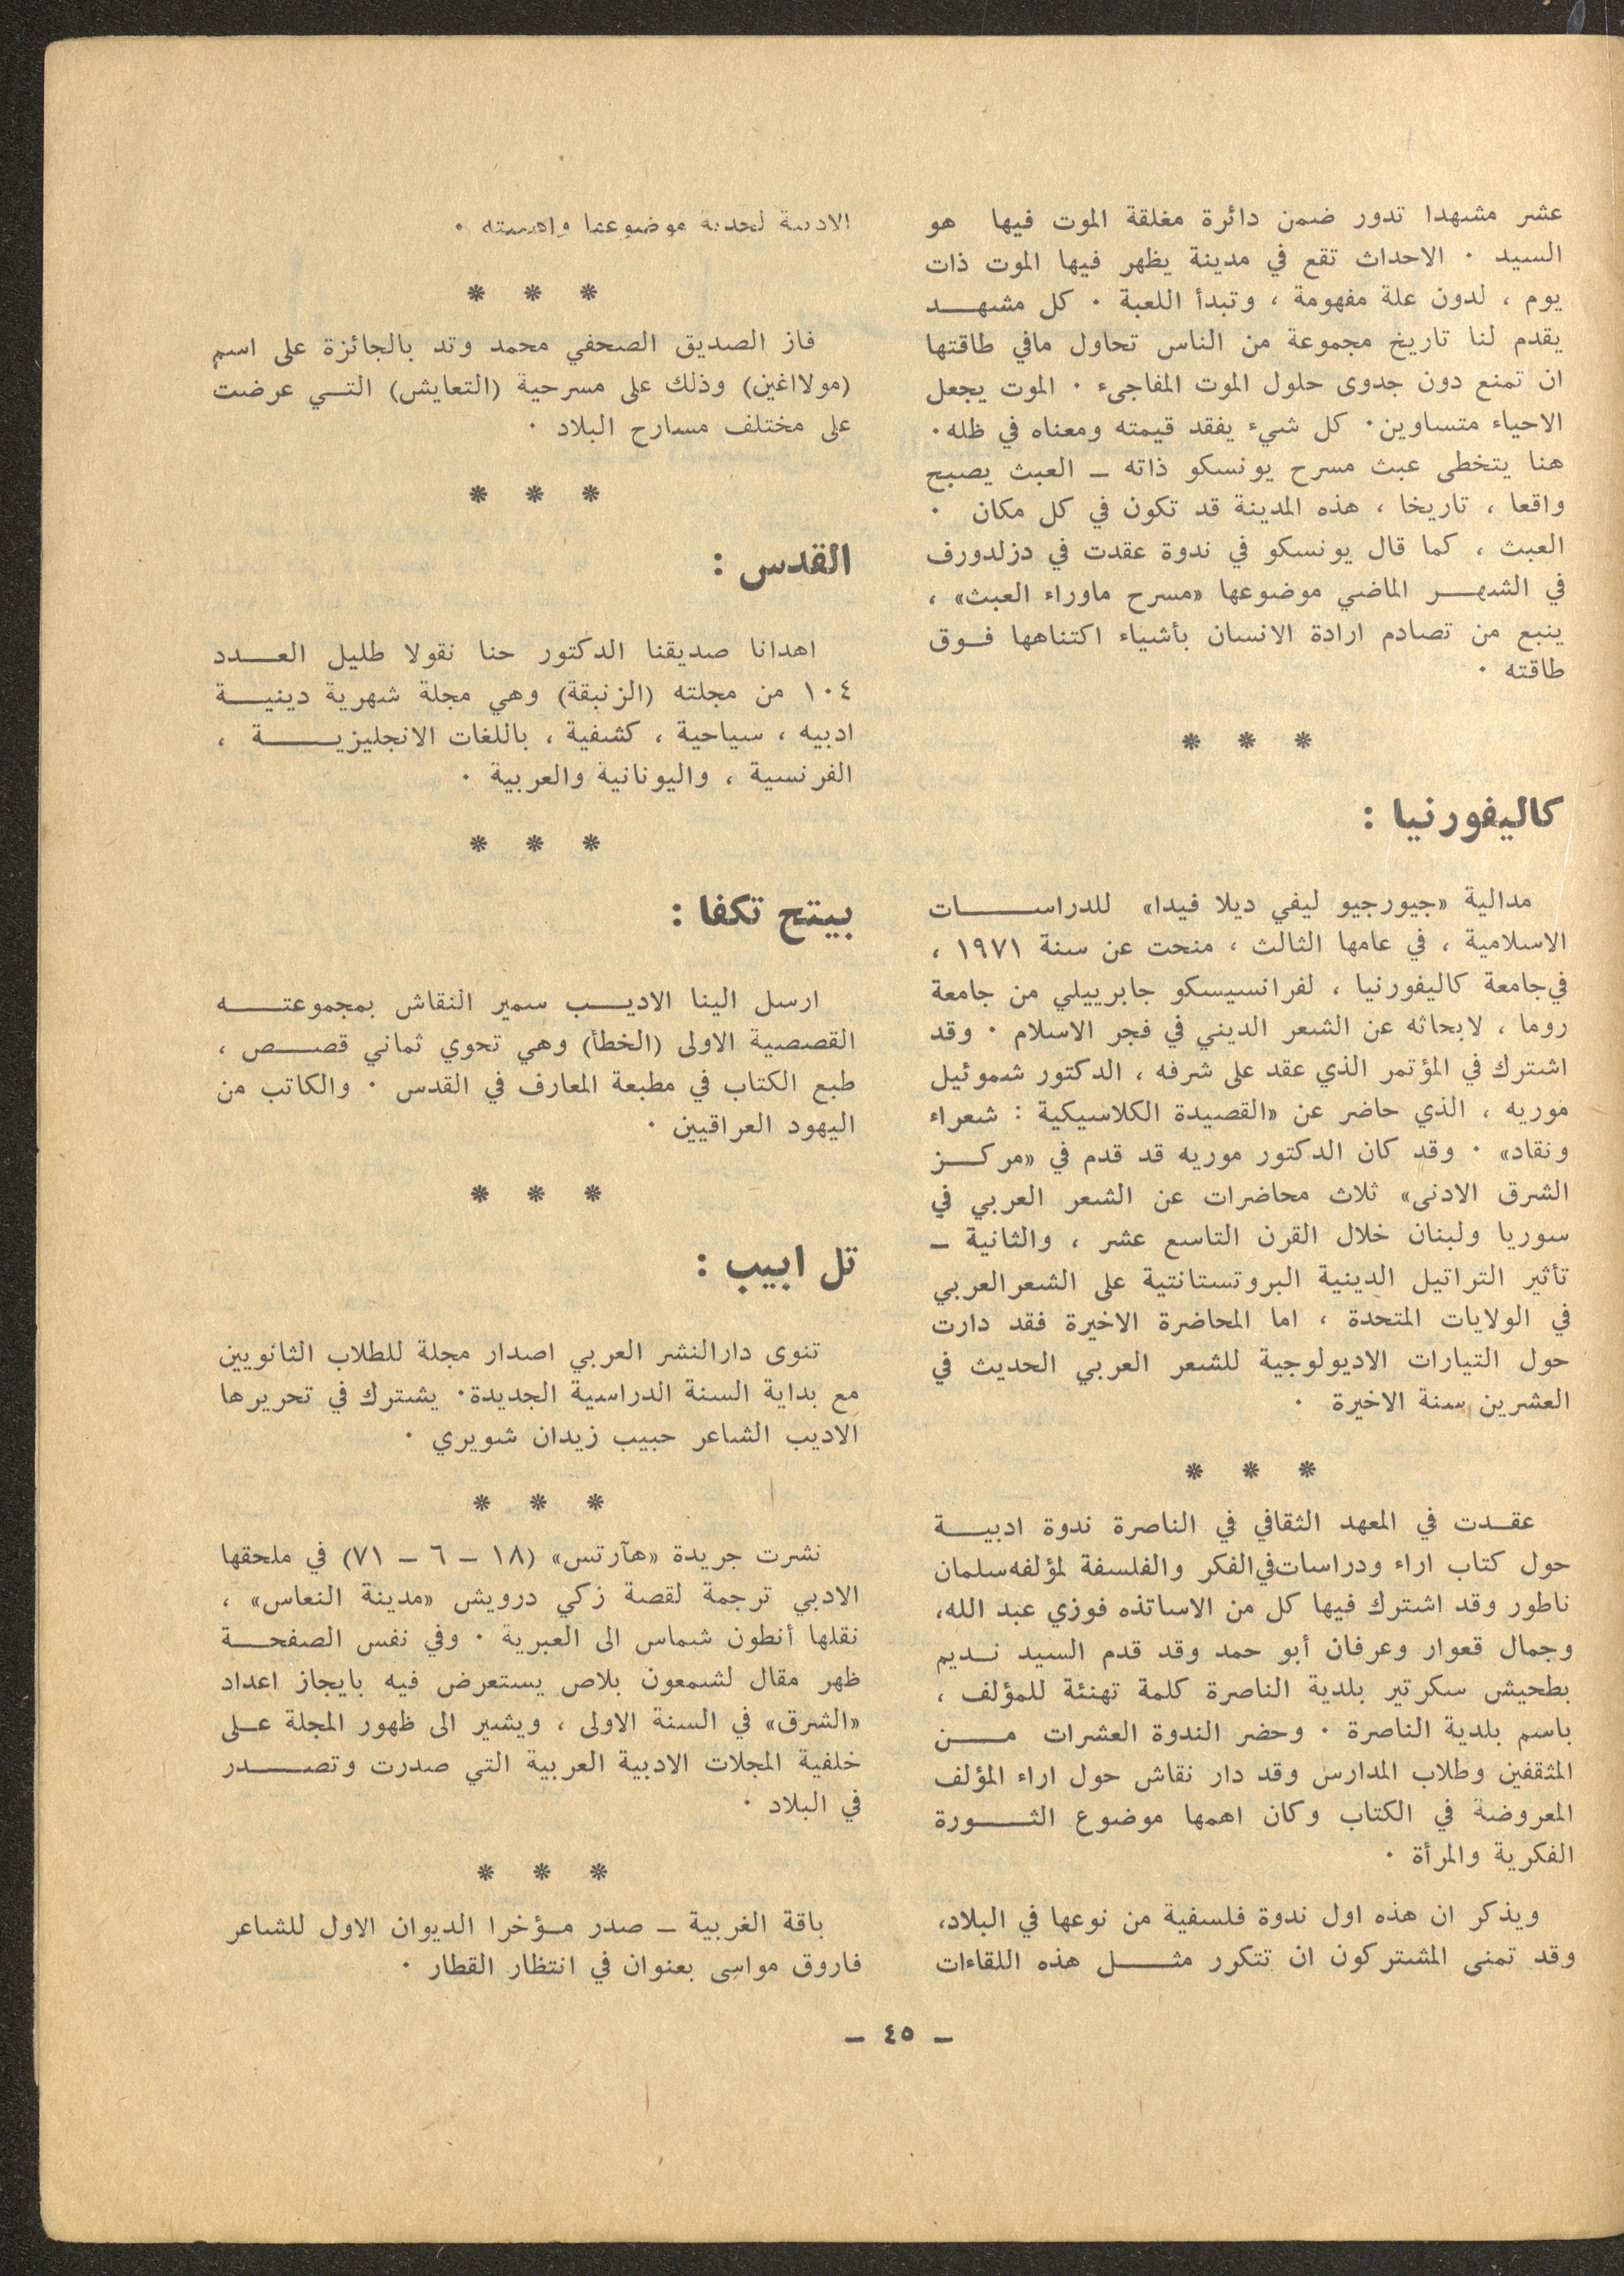 عشر مشهدا تدور ضمن دائرة مغلقة الموت فيها هو
السيد . الاحداث تقع في مدينة يظهر فيها الموت ذات
يوم ، لدون علة مفهومة ، وتبدأ اللعبة . كل مشهد
يقدم لنا تاريخ مجموعة من الناس تحاول مافي طاقتها
ان تمنع دون جدوى حلول الموت المفاجىء . الموت يجعل
الاحياء متساوين . كل شيء يفقد قيمته ومعناه في ظله .
هنا يتخطى عبث مسرح يونسكو ذاته ـ العبث يصبح
واقعا ، تاريخا ، هذه المدينة قد تكون في كل مكان .
العبث ، كما قال يونسكو في ندوة عقدت في دزلدورف
في الشهر الماضي موضوعها «مسرح ماوراء العبث» ،
ينبع من تصادم ارادة الانسان بأشياء اكتناهها فوق
طاقته .
* * *
كاليفورنيا :
مدالية «جيورجيو ليفي ديلا فيدا» للدراسات
الاسلامية ، في عامها الثالث ، منحت عن سنة ١٩٧١ ،
في جامعة كاليفورنيا ، لفرانسيسكو جابرييلي من جامعة
روما ، لابحاثه عن الشعر الديني في فجر الاسلام . وقد
اشترك في المؤتمر الذي عقد على شرفه ، الدكتور شموئيل
موريه ، الذي حاضر عن «القصيدة الكلاسيكية : شعراء
ونقاد» . وقد كان الدكتور موريه قد قدم في «مركز
الشرق الادنى» ثلاث محاضرات عن الشعر العربي في
سوريا ولبنان خلال القرن التاسع عشر ، والثانية ـ
تأثير التراتيل الدينية البروتستانتية على الشعر العربي
في الولايات المتحدة ، اما المحاضرة الاخيرة فقد دارت
حول التيارات الاديولوجية للشعر العربي الحديث في
العشرين سنة الاخيرة .
* * *
عقدت في المعهد الثقافي في الناصرة ندوة ادبية
حول كتاب اراء ودراسات في الفكر والفلسفة لمؤلفه سلمان
ناطور وقد اشترك فيها كل من الاساتذه فوزي عبد الله،
وجمال قعوار وعرفان أبو حمد وقد قدم السيد نديم
بطحيش سكرتير بلدية الناصرة كلمة تهنئة للمؤلف ،
باسم بلدية الناصرة . وحضر الندوة العشرات من
المثقفين وطلاب المدارس وقد دار نقاش حول اراء المؤلف
المعروضة في الكتاب وكان اهمها موضوع الثورة
الفكرية والمرأة .
ويذكر ان هذه اول ندوة فلسفية من نوعها في البلاد،
وقد تمنى المشتركون ان تتكرر مثل هذه اللقاءات
الادبية لجدية موضوعها واهميته .
* * *
فاز الصديق الصحفي محمد وتد بالجائزة على اسم
(مولااغين) وذلك على مسرحية (التعايش) التي عرضت
على مختلف مسارح البلاد .
* * *
القدس :
اهدانا صديقنا الدكتور حنا نقولا طليل العدد
١٠٤ من مجلته (الزنبقة) وهي مجلة شهرية دينية
ادبيه ، سياحية ، كشفية ، باللغات الانجليزية ،
الفرنسية ، واليونانية والعربية .
* * *
بيتح تكفا :
ارسل الينا الاديب سمير النقاش بمجموعته
القصصية الاولى (الخطأ) وهي تحوي ثماني قصص ،
طبع الكتاب في مطبعة المعارف في القدس . والكاتب من
اليهود العراقيين .
* * *
تل ابيب :
تنوى دار النشر العربي اصدار مجلة للطلاب الثانويين
مع بداية السنة الدراسية الجديدة . يشترك في تحريرها
الاديب الشاعر حبيب زيدان شويري .
* * *
نشرت جريدة «هآرتس» (١٨ ـ ٦ ـ ٧١) في ملحقها
الادبي ترجمة لقصة زكي درويش «مدينة النعاس» ،
نقلها أنطون شماس الى العبرية . وفي نفس الصفحة
ظهر مقال لشمعون بلاص يستعرض فيه بايجاز اعداد
«الشرق» في السنة الاولى ، ويشير الى ظهور المجلة على
خلفية المجلات الادبية العربية التي صدرت وتصدر
في البلاد .
* * *
باقة الغربية ـ صدر مؤخرا الديوان الاول للشاعر
فاروق مواسى بعنوان في انتظار القطار .
ـ ٤٥ ـ